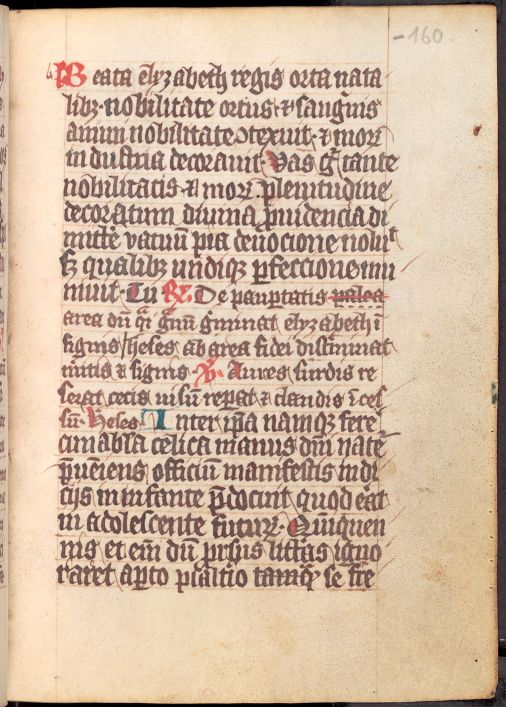 160
Beata elyzabeth regis orta nata
libꝫ nobilitate ortus ⁊ sanguis
animi nobilitate ꝯtexuit ⁊ moꝝ
industria decorauit Vas gͥ tante
nobilitatis ⁊ moꝝ plenitudine
decoratum diuina ꝓuidencia di
mitte vacuū pia deuocione nobil
sꝫ qualibꝫ undiqꝫ ꝑfeccione mu
niuit Tu ℟ De pauptatis palea
area dū gnū gminat elyzabeth ī
signis heses ab area fidei discͥminat
mitis ⁊ signis ℣ Aures surdis re
serat cecis uisū repat ⁊ claudis īces
sū heses Inter ipa namqꝫ fere
cunabla celica manus dni nate
pueniens officiū manifestis indi
cijs in infante pdocuit quod eāt
in adolescente futuꝝ Quinquen
nis et em dū prsus litteras igno
raret apto psaltio tamqͣ se fre